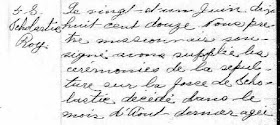 S. 8.
Scholastie
Roy
Le vingt-et-un Juin dix
huit cent douze Nous, prê
tre missionnaire sous
signé avons suppléé les
cérémonies de la sépul
ture sur la fosse de Scho
lastie, décédé dans le
mois d'Aout dernier agée